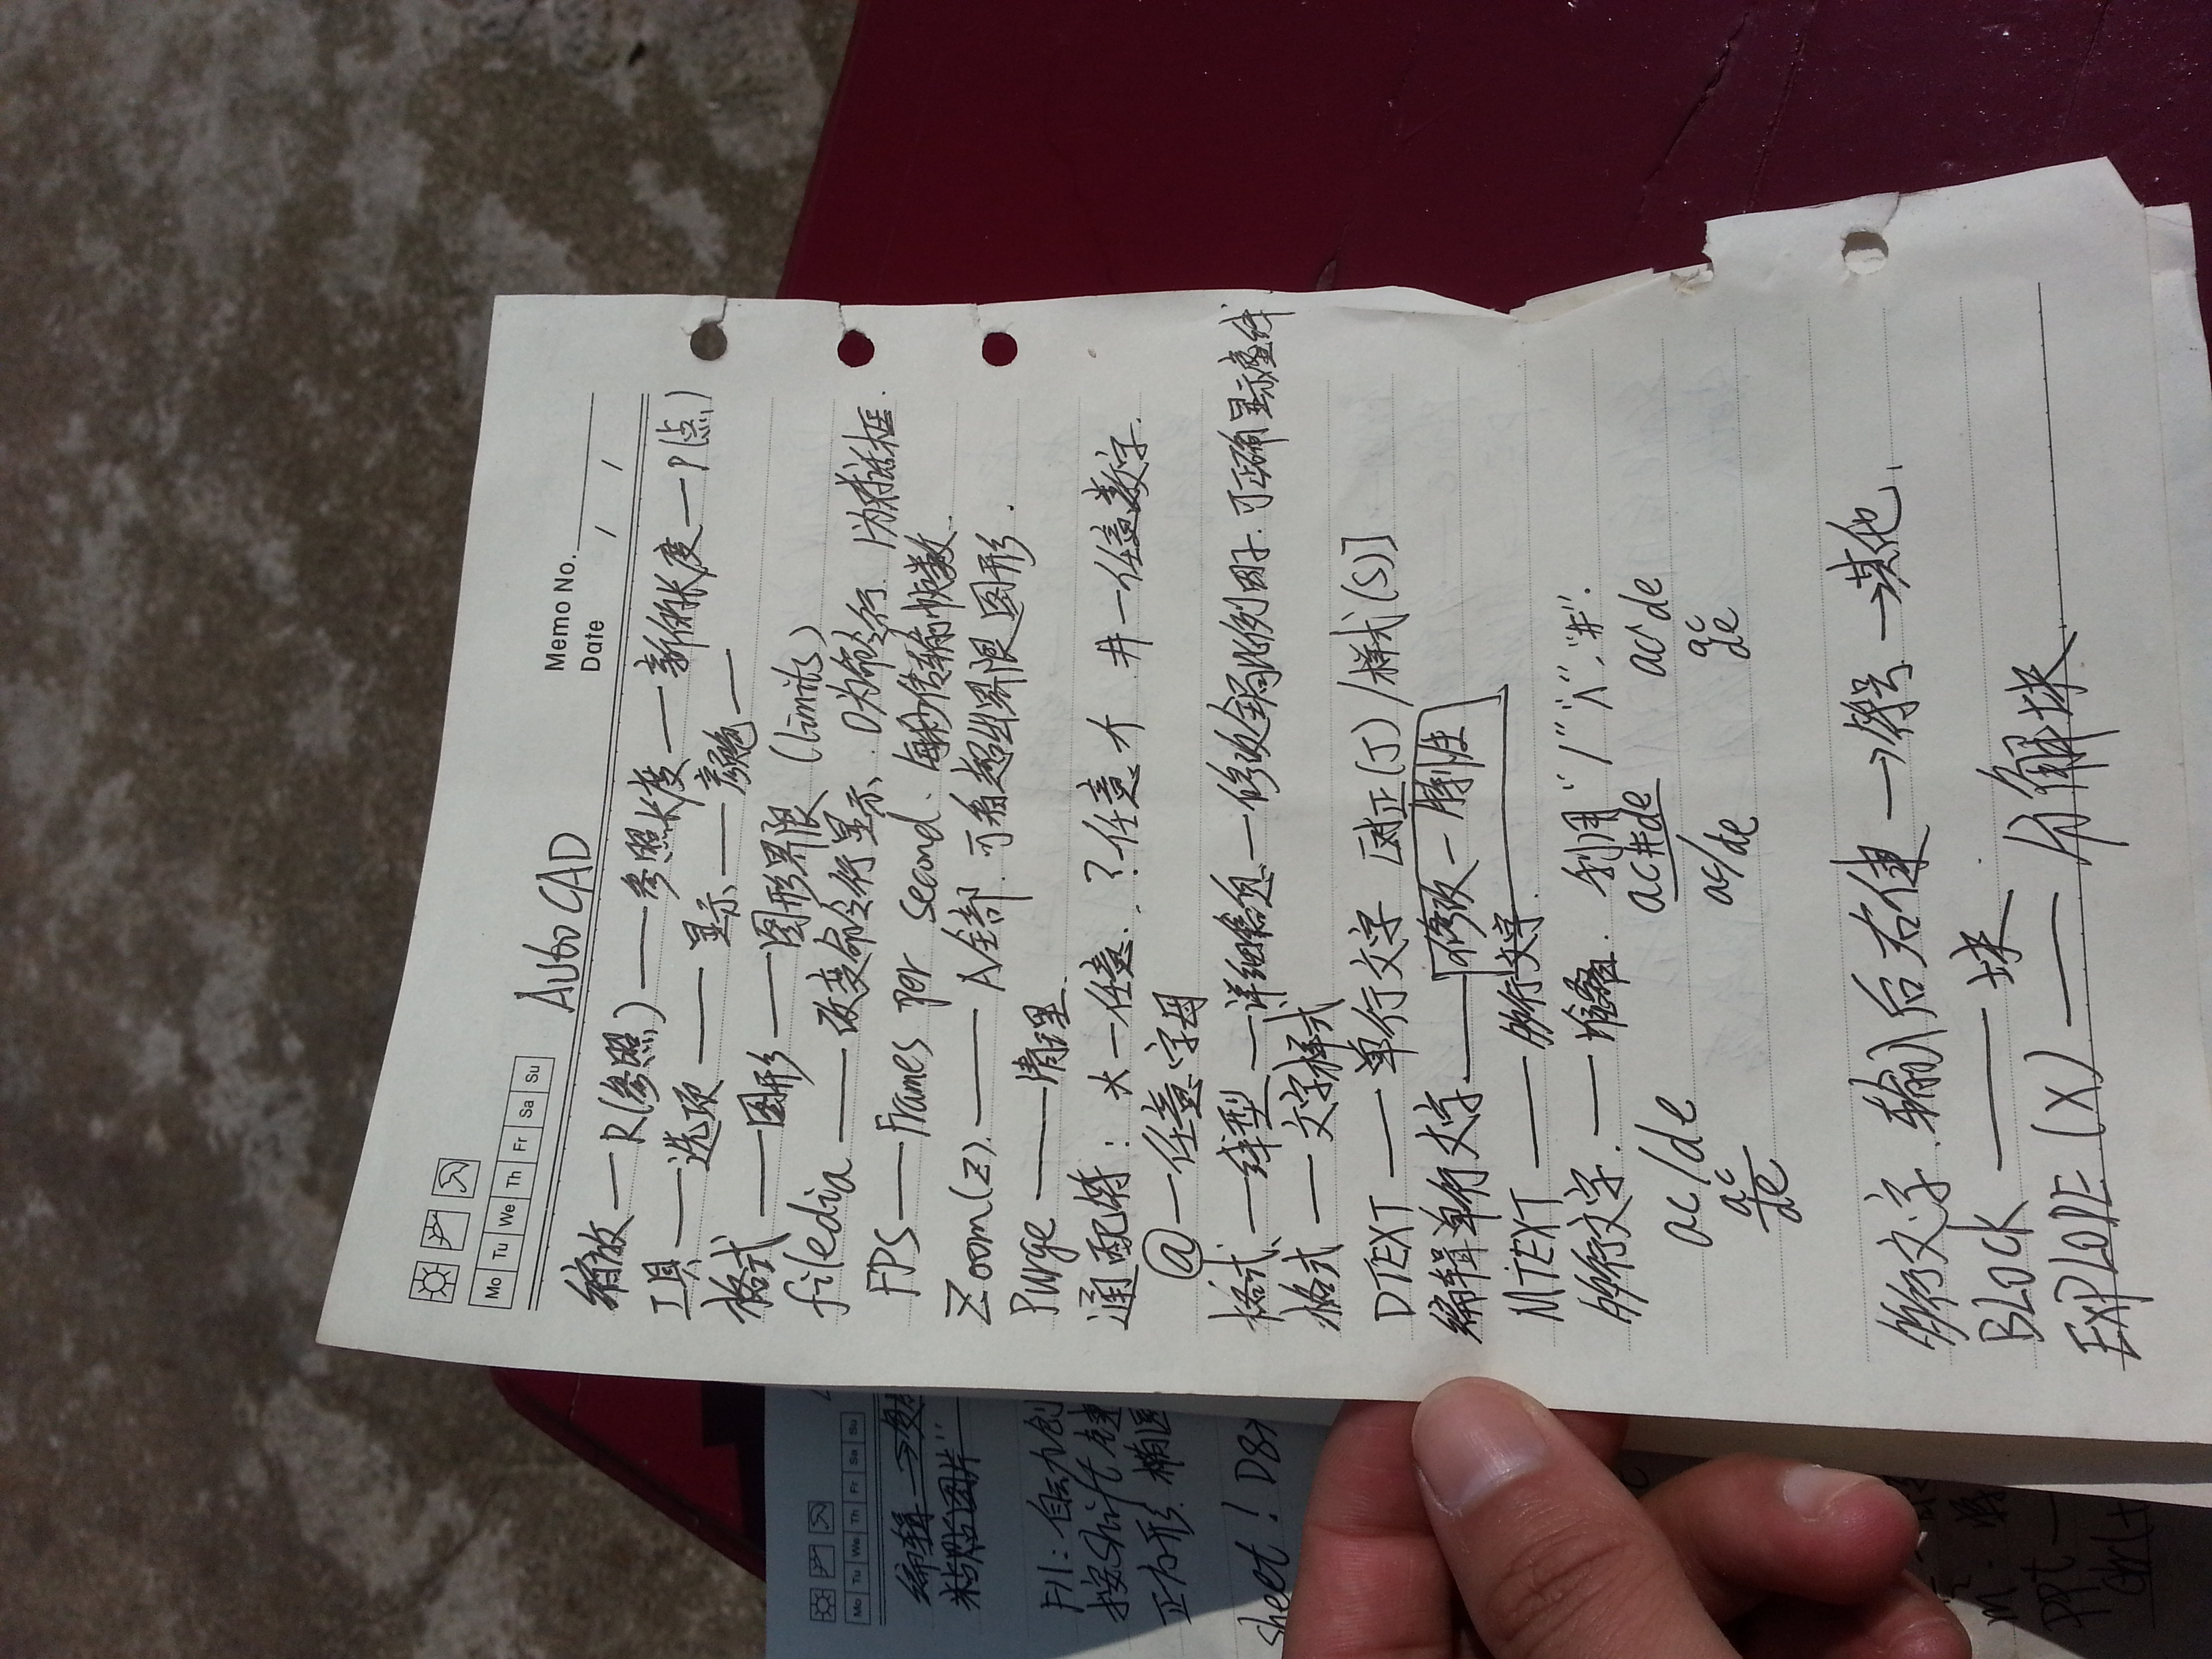 Mo Tu We Th Fr Sa Su
AutoCAD
Memo No.
Date / /
缩放—R(参照)—参照长度—新的长度—P(点)
工具—选项—显示—颜色—
格式—图形—图形界限 (limits)
filedia—改变命令行显示. 0为命令行. 1为对话框.
FPS—Frames per second. 每秒传输帧数.
Zoom(Z).—A全部.可看超出界限图形.
Purge—清理.
通配符: *—任意. ?任意个 #—任意数字.
@—任意字母
格式—线型—详细信息—修改全局比例因子.可正确显示虚线.
格式—文字样式
DTEXT—单行文字 [对正(J)/样式(S)]
编辑单行文字.—修改—特性
MTEXT—多行文字.
多行文字.—堆叠. 利用"/""^"."#".
ac/de ac#de ac^de
ac
de
ac/de
ac
de
多行文字.输入后右键→符号→其他.
BLOCK—块
EXPLODE(X)—分解块.
Mo Tu We Th Fr Sa Su
编辑→
粘贴图片"
F11: 自动创
按Shift键
正方形.椭圆
sheet! D8
m².
ppt—
Ctrl+